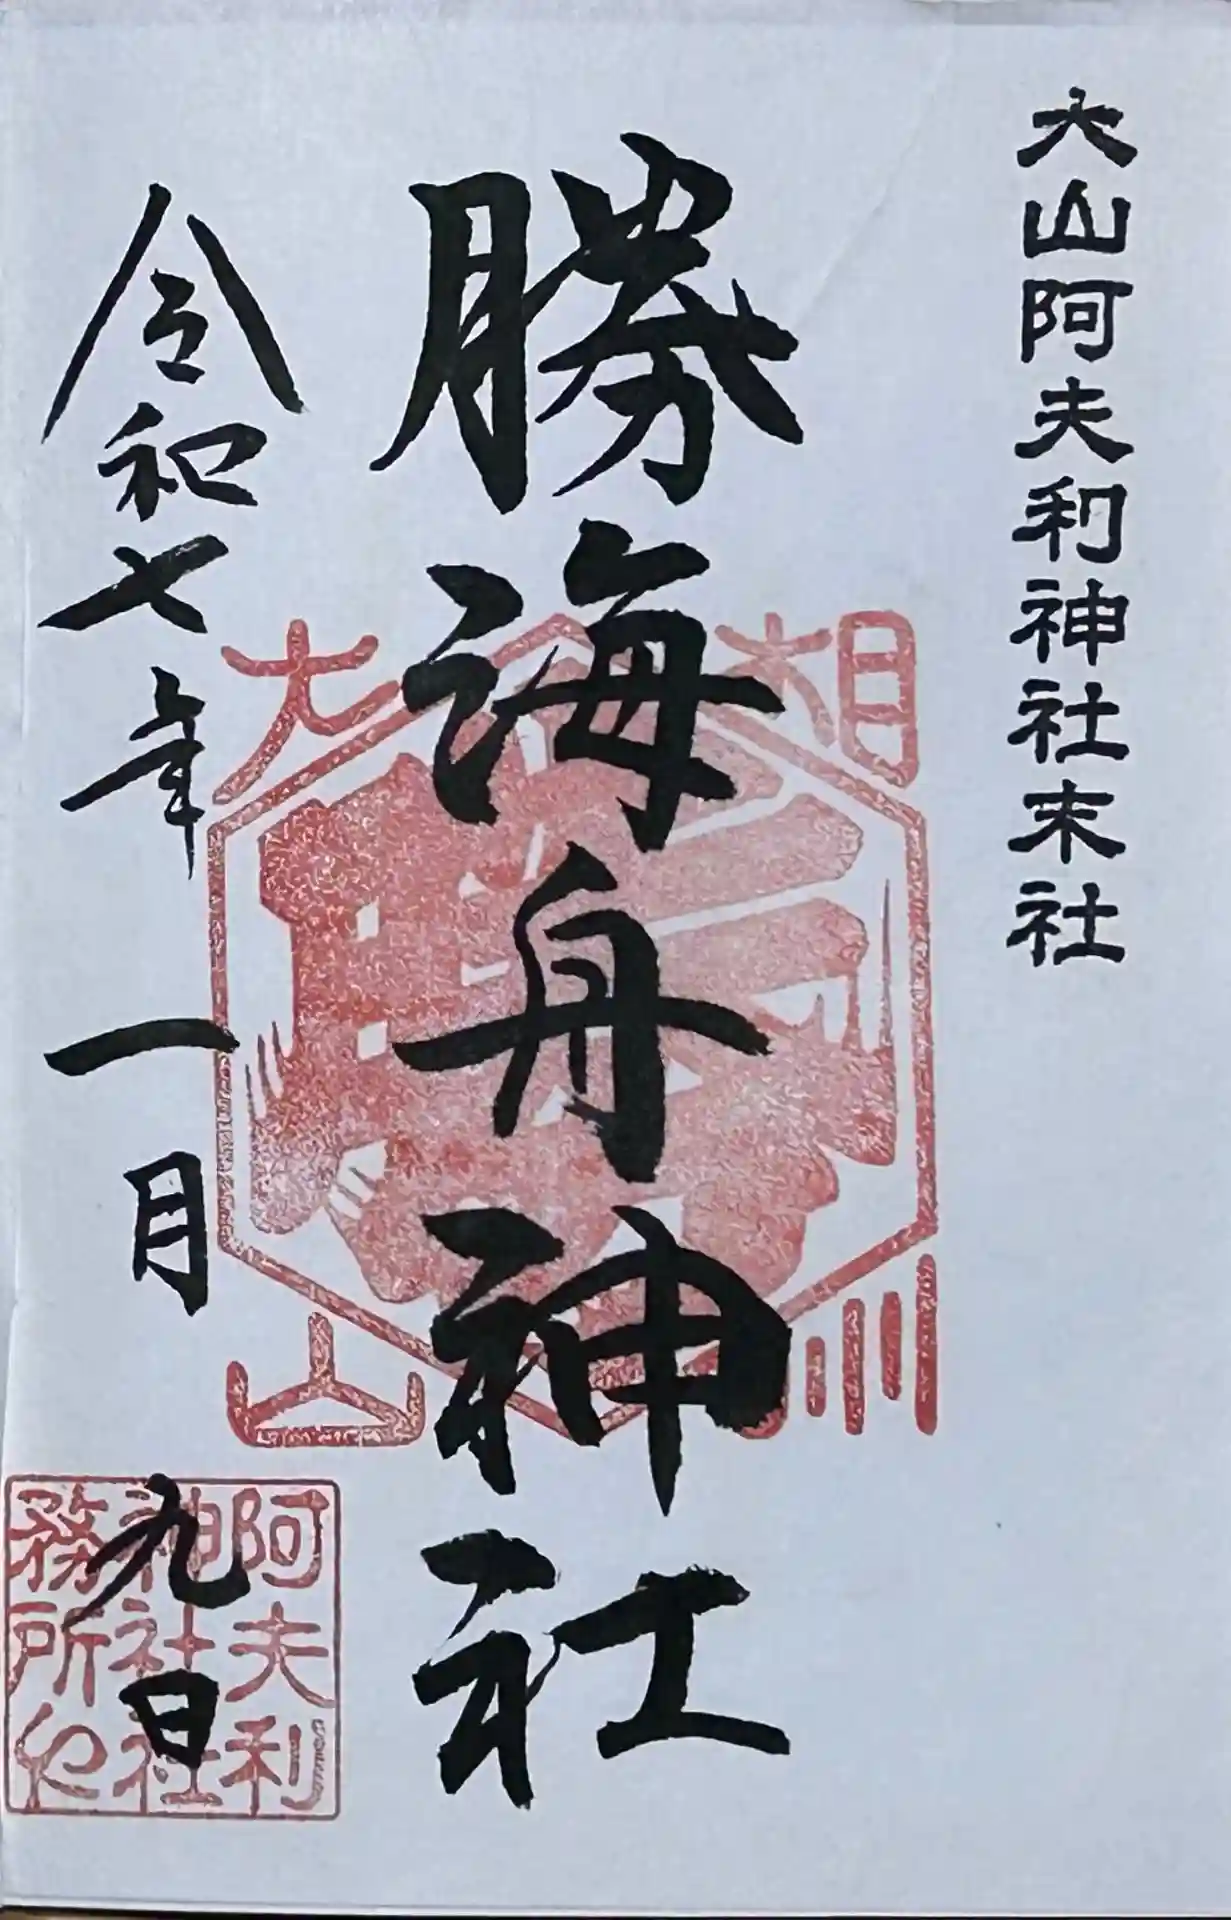 大山阿夫利神社末社
勝海舟神社
令和七年一月九日
相川
大山
阿夫利
神社社
務所印